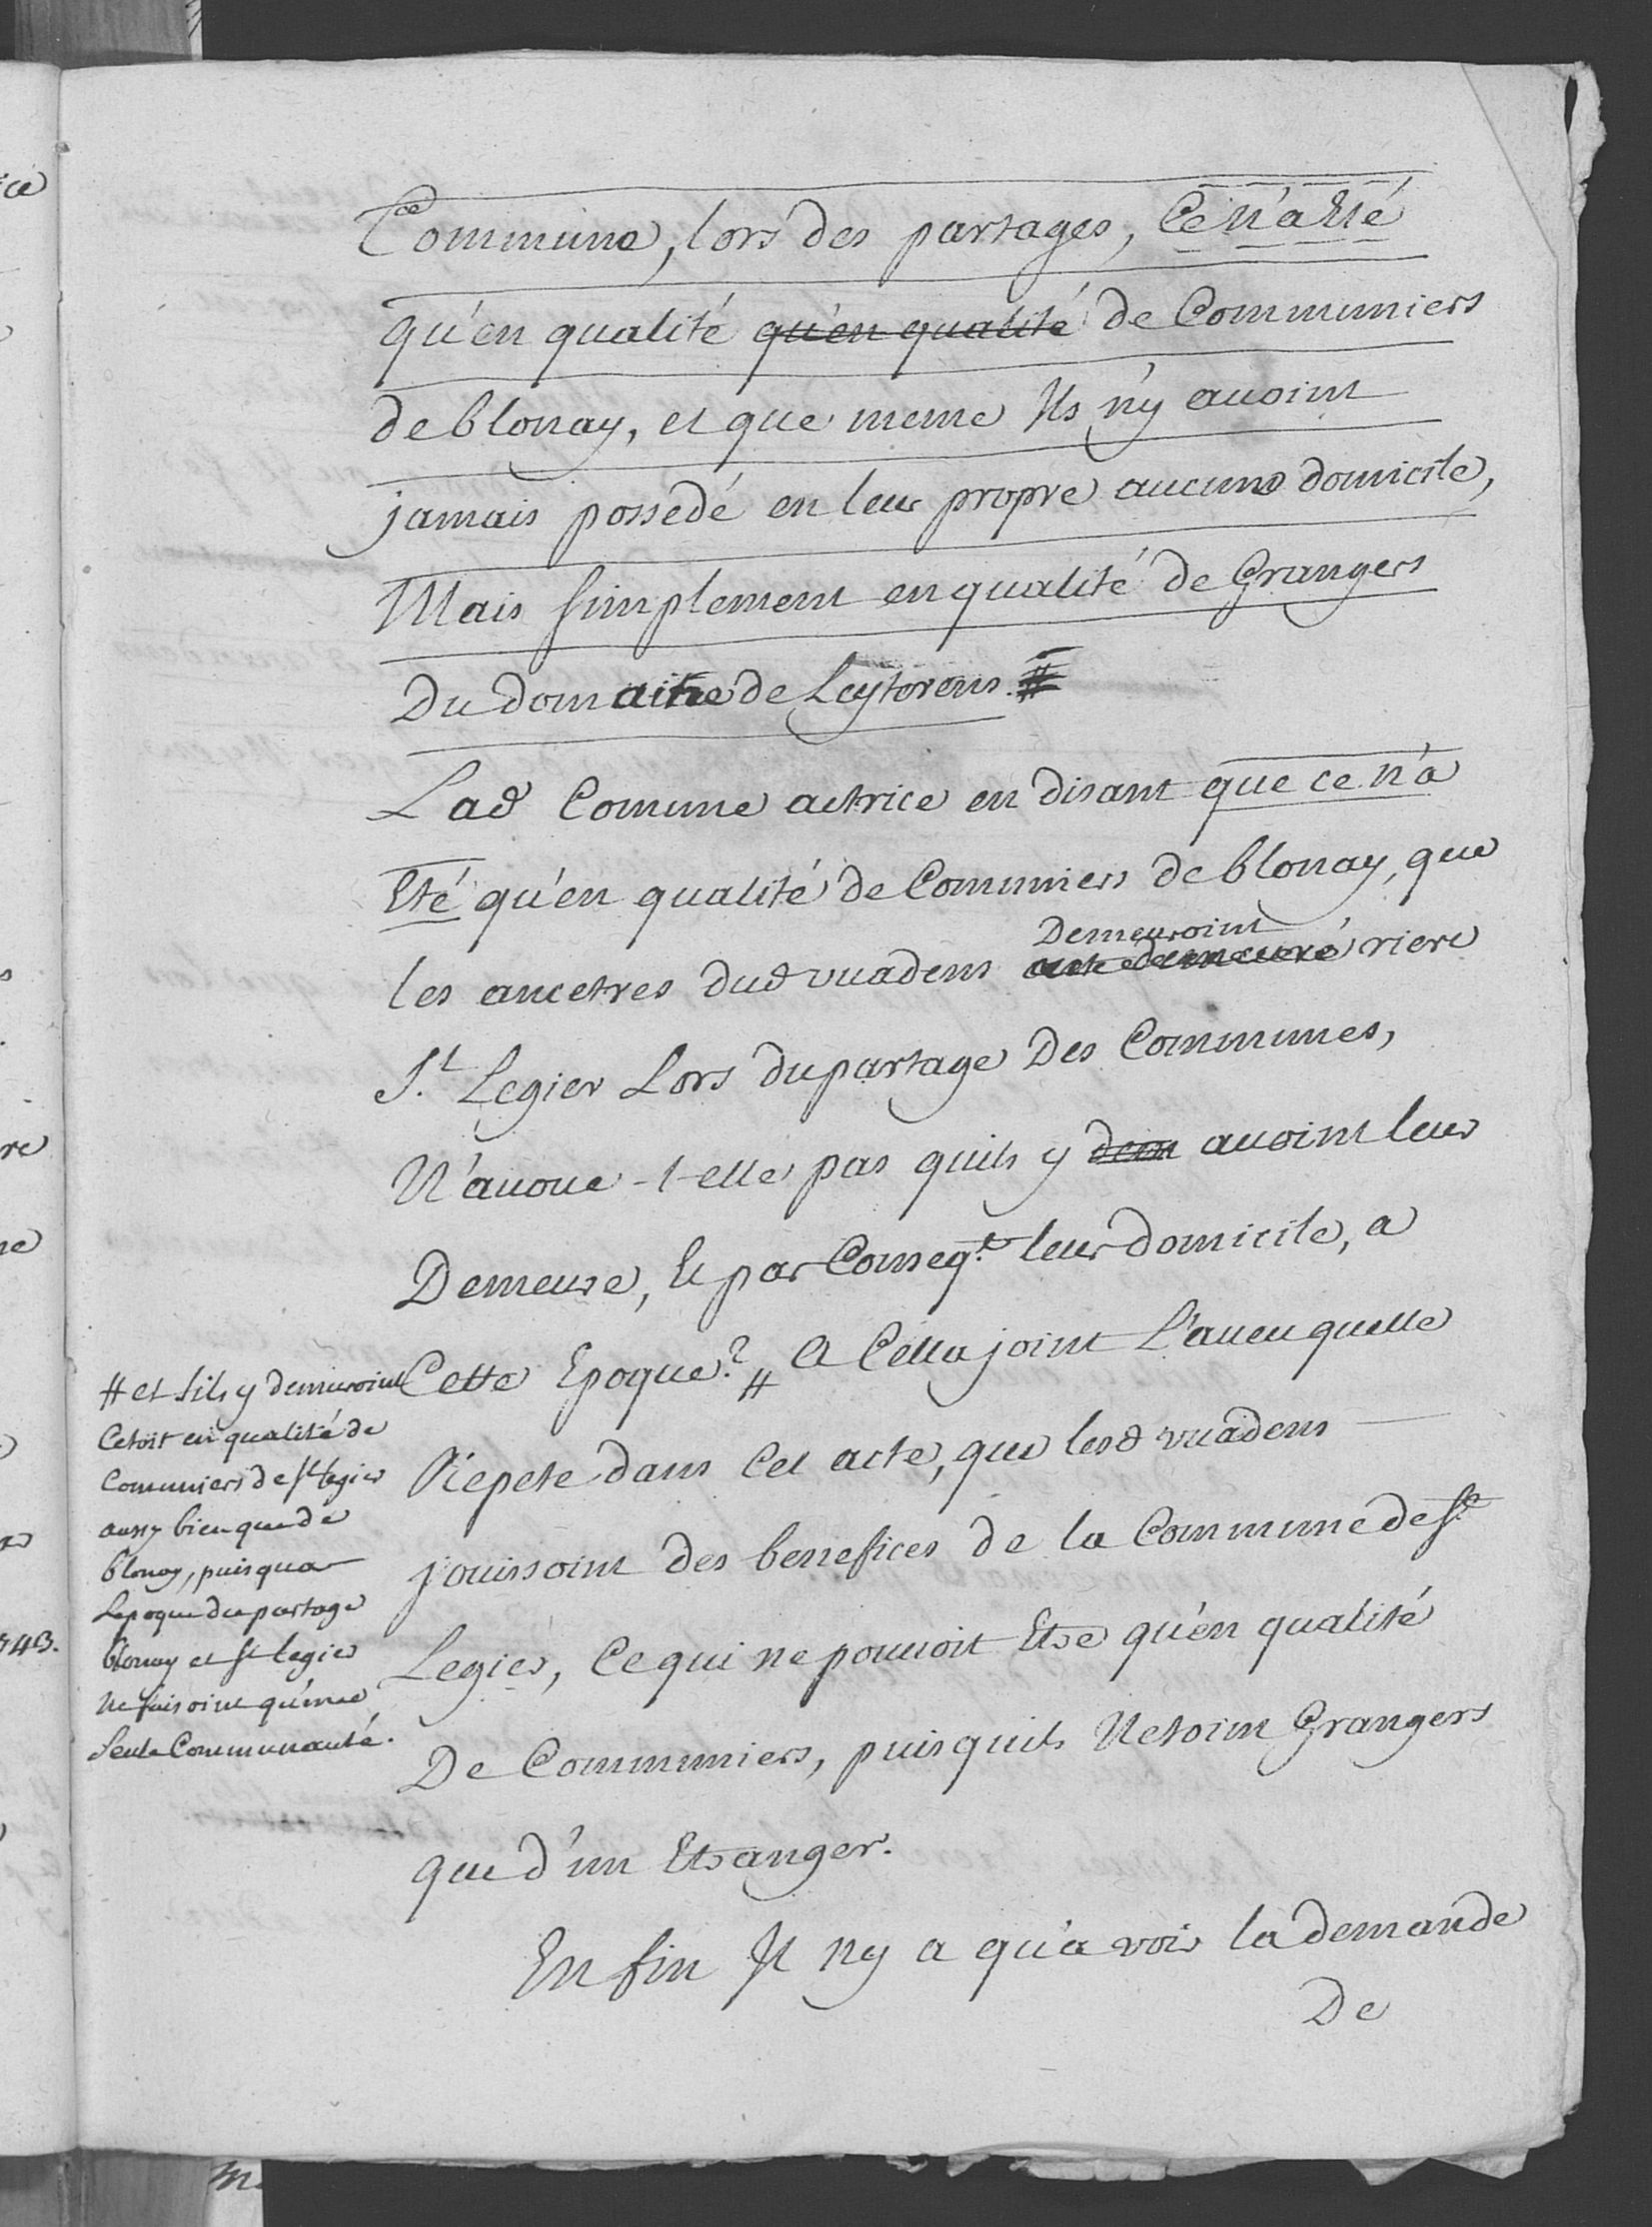 Commune, lors des partages, Ce n'a Eté
qu'en qualité qu'en qualité de Communiers
de blonay, et que meme Ils n'y avoint
jamais possedé en leur propre aucuno domicile,
Mais simplement en qualité de Grangers
Du domaine de Leytorens. #
Lad Comune actrice en disant que ce n'a
Eté qu'en qualité de Communiers de blonay, que
Demeuroint
les ancetres dud vuadens demeuré riere
St. Legier Lors du partage Des Communes,
N'avoue-t-elle pas quils y dem avoint leur
Demeure, Et par Conseqt. leur domicile, a
Cette Epoque? # A Cella joint L'aveu quelle
Repete dans Cet acte, que lesd vuadens
jouissoint des benefices de la Commune de St.
Legier, Ce qui ne pouvoit Etre qu'en qualité
De Communiers, puis quils Netoint Grangers
que d'un Etranger.
En fin Il ny a qu'a voir la demande
De
# et sils y demeuroint
Cetoit en qualité de
Comuniers de St legier
aussy bien que de
blonay, puis qua
Lepoque du partage
blonay et St legier
ne faisoint qu'une
Seule Communauté.